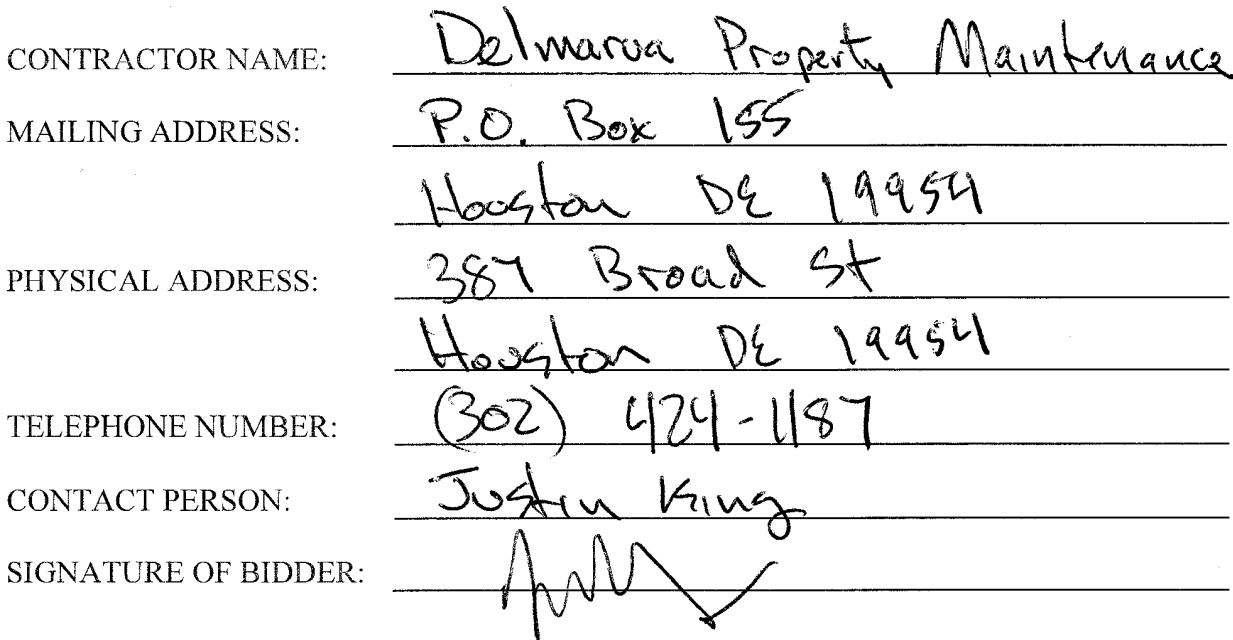 CONTRACTOR NAME: Delmarva Property Maintenance
MAILING ADDRESS: P.O. Box 155
Houston DE 19954
PHYSICAL ADDRESS: 387 Broad St
Houston DE 19954
TELEPHONE NUMBER: (302) 424-1187
CONTACT PERSON: Justin King
SIGNATURE OF BIDDER: